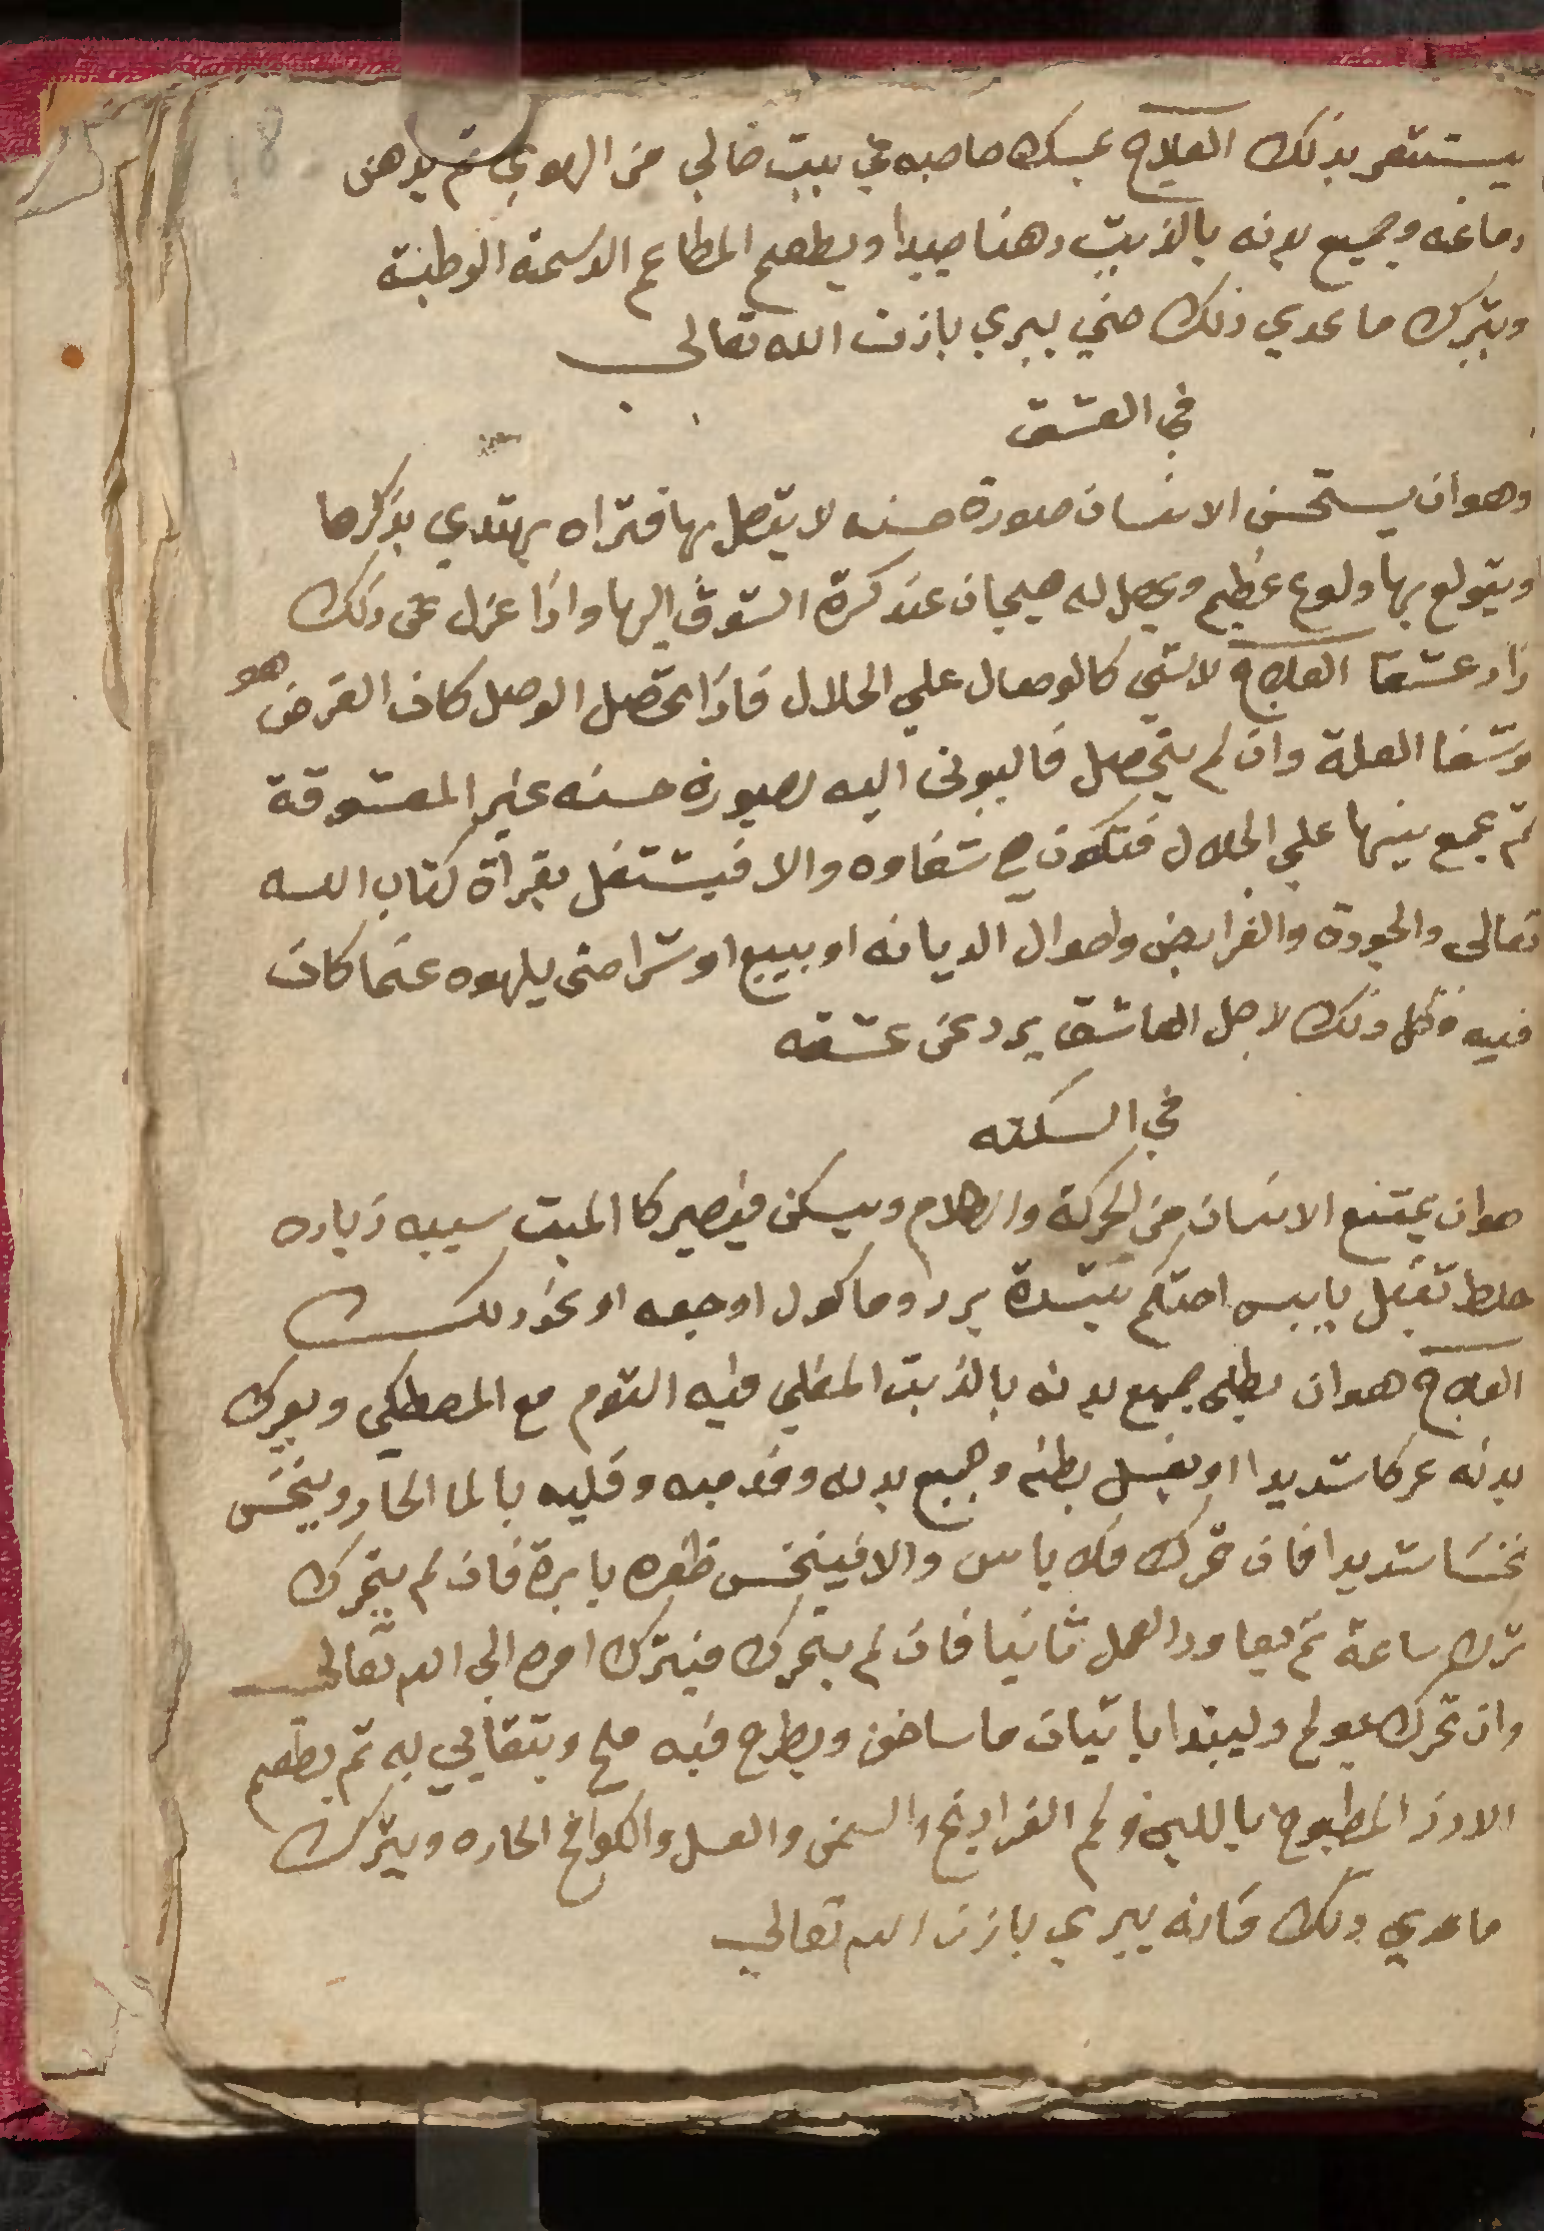 يستتقر بذلك العلاج يمسك صاحبه في بيت خالي من الهوي ثم يدهن
دماغه وجميع بدنه بالزيت دهنا جيدا ويطعم المطاعم الدسمة الوطبة
ويترك ما عدي ذلك حتي يبري باذن الله تعالى
في العشق
وهو ان يستحسن الانسان صورة حسنه لا يتصل بها فتراه يهتدي بذكرها
ويتولع بها ولوع عظيم ويحصل له هيجان عند كرة الشوق اليها واذا عزل عن ذلك
زاد عشقا العلاج لا شي كالوصال علي الحلال فاذا تحصل الوصل كان الغرض هو
وشفا العلة وان لم يتحصل فاليوتى اليه بصورة حسنه غير المعشوقة
ثم يجمع بينها علي الحلال فتكون هي شفاوه والا فيشتغل بقرأة كتاب الله
تعالى والجودة والفرايض واصوال الديانه او ببيع او شرا حتى يلهوه عنما كان
فيه فكل ذلك لاجل العاشق يرد عن عشقه
في السكته
هو ان يمتنع الانسان من الحركة والكلام ويسكن فيصير كا الميت سببه زياده
خلط ثقيل يابس احتكم بشدة برد وماكول اوجعه او نحو ذلك
العلاج هو ان يطلى جميع بدنه بالزيت المغلي فيه الثوم مع المصطكي ويعرك
بدنه عركا شديدا او يغسل بطنه وجميع بدنه وقدميه وقلبه بالما الحار وينخس
نخسا شديدا فان تحرك فلا باس والا فينخس ظفره بابرة فان لم يتحرك
ترك ساعة ثم يعاود العمل ثانيا فان لم يتحرك فيترك امره الى الله تعالى
وان تحرك عولج وليبتدا باتيان ما ساخن ويطرح فيه ملح ويتقايي به ثم يطعم
الارز المطبوخ باللبن ولحم الفراريج والسمن والعسل والكوامخ الحاره ويترك
ما عدي ذلك فانه يبري باذن الله تعالى